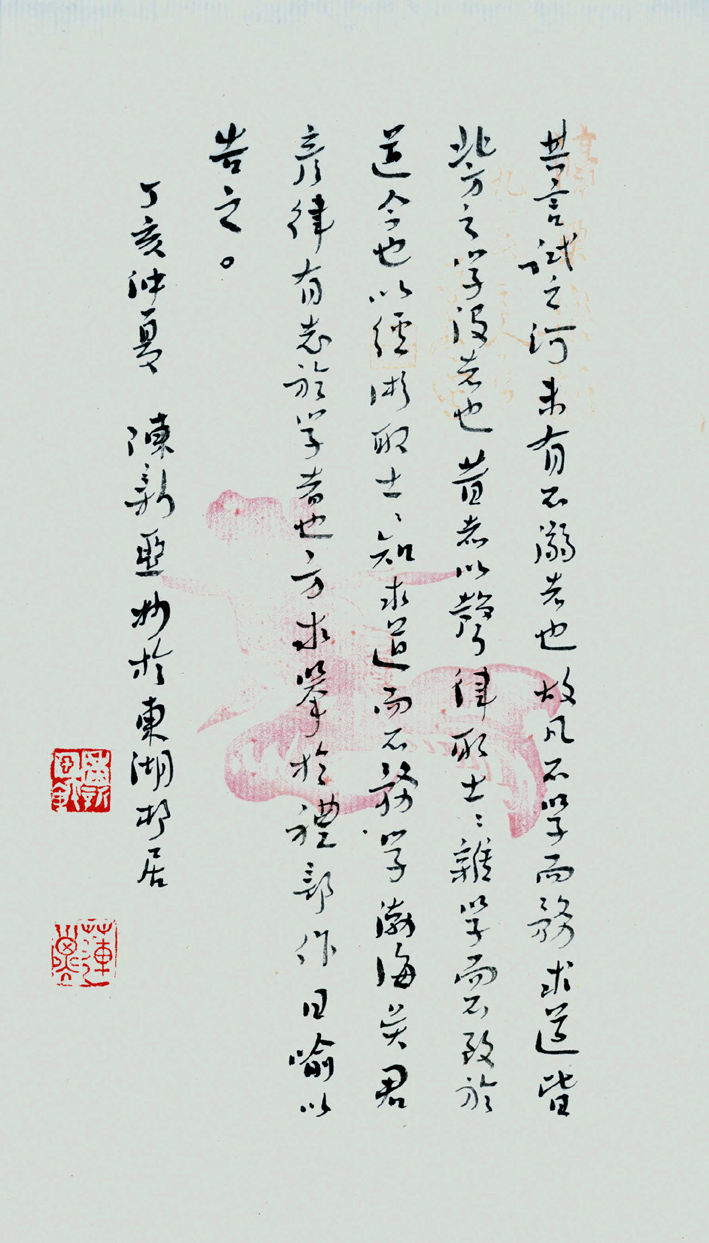 其言試之河未有不溺者也故凡不學而務求道皆
北方之學沒者也昔者以聲律取士士雜學而不致於
道今也以經術取士士知求道而不務學渤海吳君
彥律有志於學者也方求舉於禮部作日喻以
告之。
丁亥仲夏 陳新亞抄於東湖村居